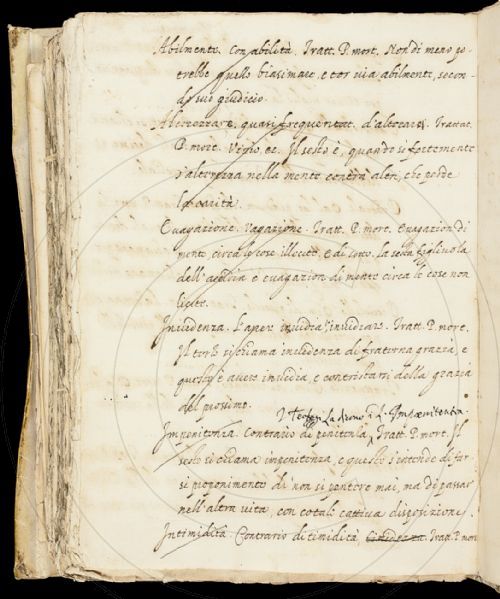 Abilmente. Con abilità. Tratt. P. mort. Non di meno po-
trebbe quello biasimare e tor via abilmente, secon-
do suo giudicio.
quasi frequentat. d'altezare. Trattat.
P. mort. Il sesto è, quando si fortemente
s'altezza nella mente contra altri, che perde
la carità.
Evagazione. Vagazione. Tratt. P. mort. Evagazion di
mente circa le cose illecite. E di sotto. la sesta figliuola
dell'accidia è evagazion di mente circa le cose non
licite.
Invidenza. L'aver invidia, invidiare. Tratt. P. mort.
Il terzo si chiama invidenza di fraterna grazia, e
questo è avere invidia, e contristarsi della grazia
del prossimo.
Impoenitentia.
Impenitenza. Contrario di penitenza. Tratt. P. mort. Il
sesto si chiama impenitenza, e questo s'intende di far-
si proponimento di non si pentere mai, ma di passar
nell'altra vita, con cotal cattiva disposizione.
Intimidità. Contrario di timidità. Tratt. P. mort.